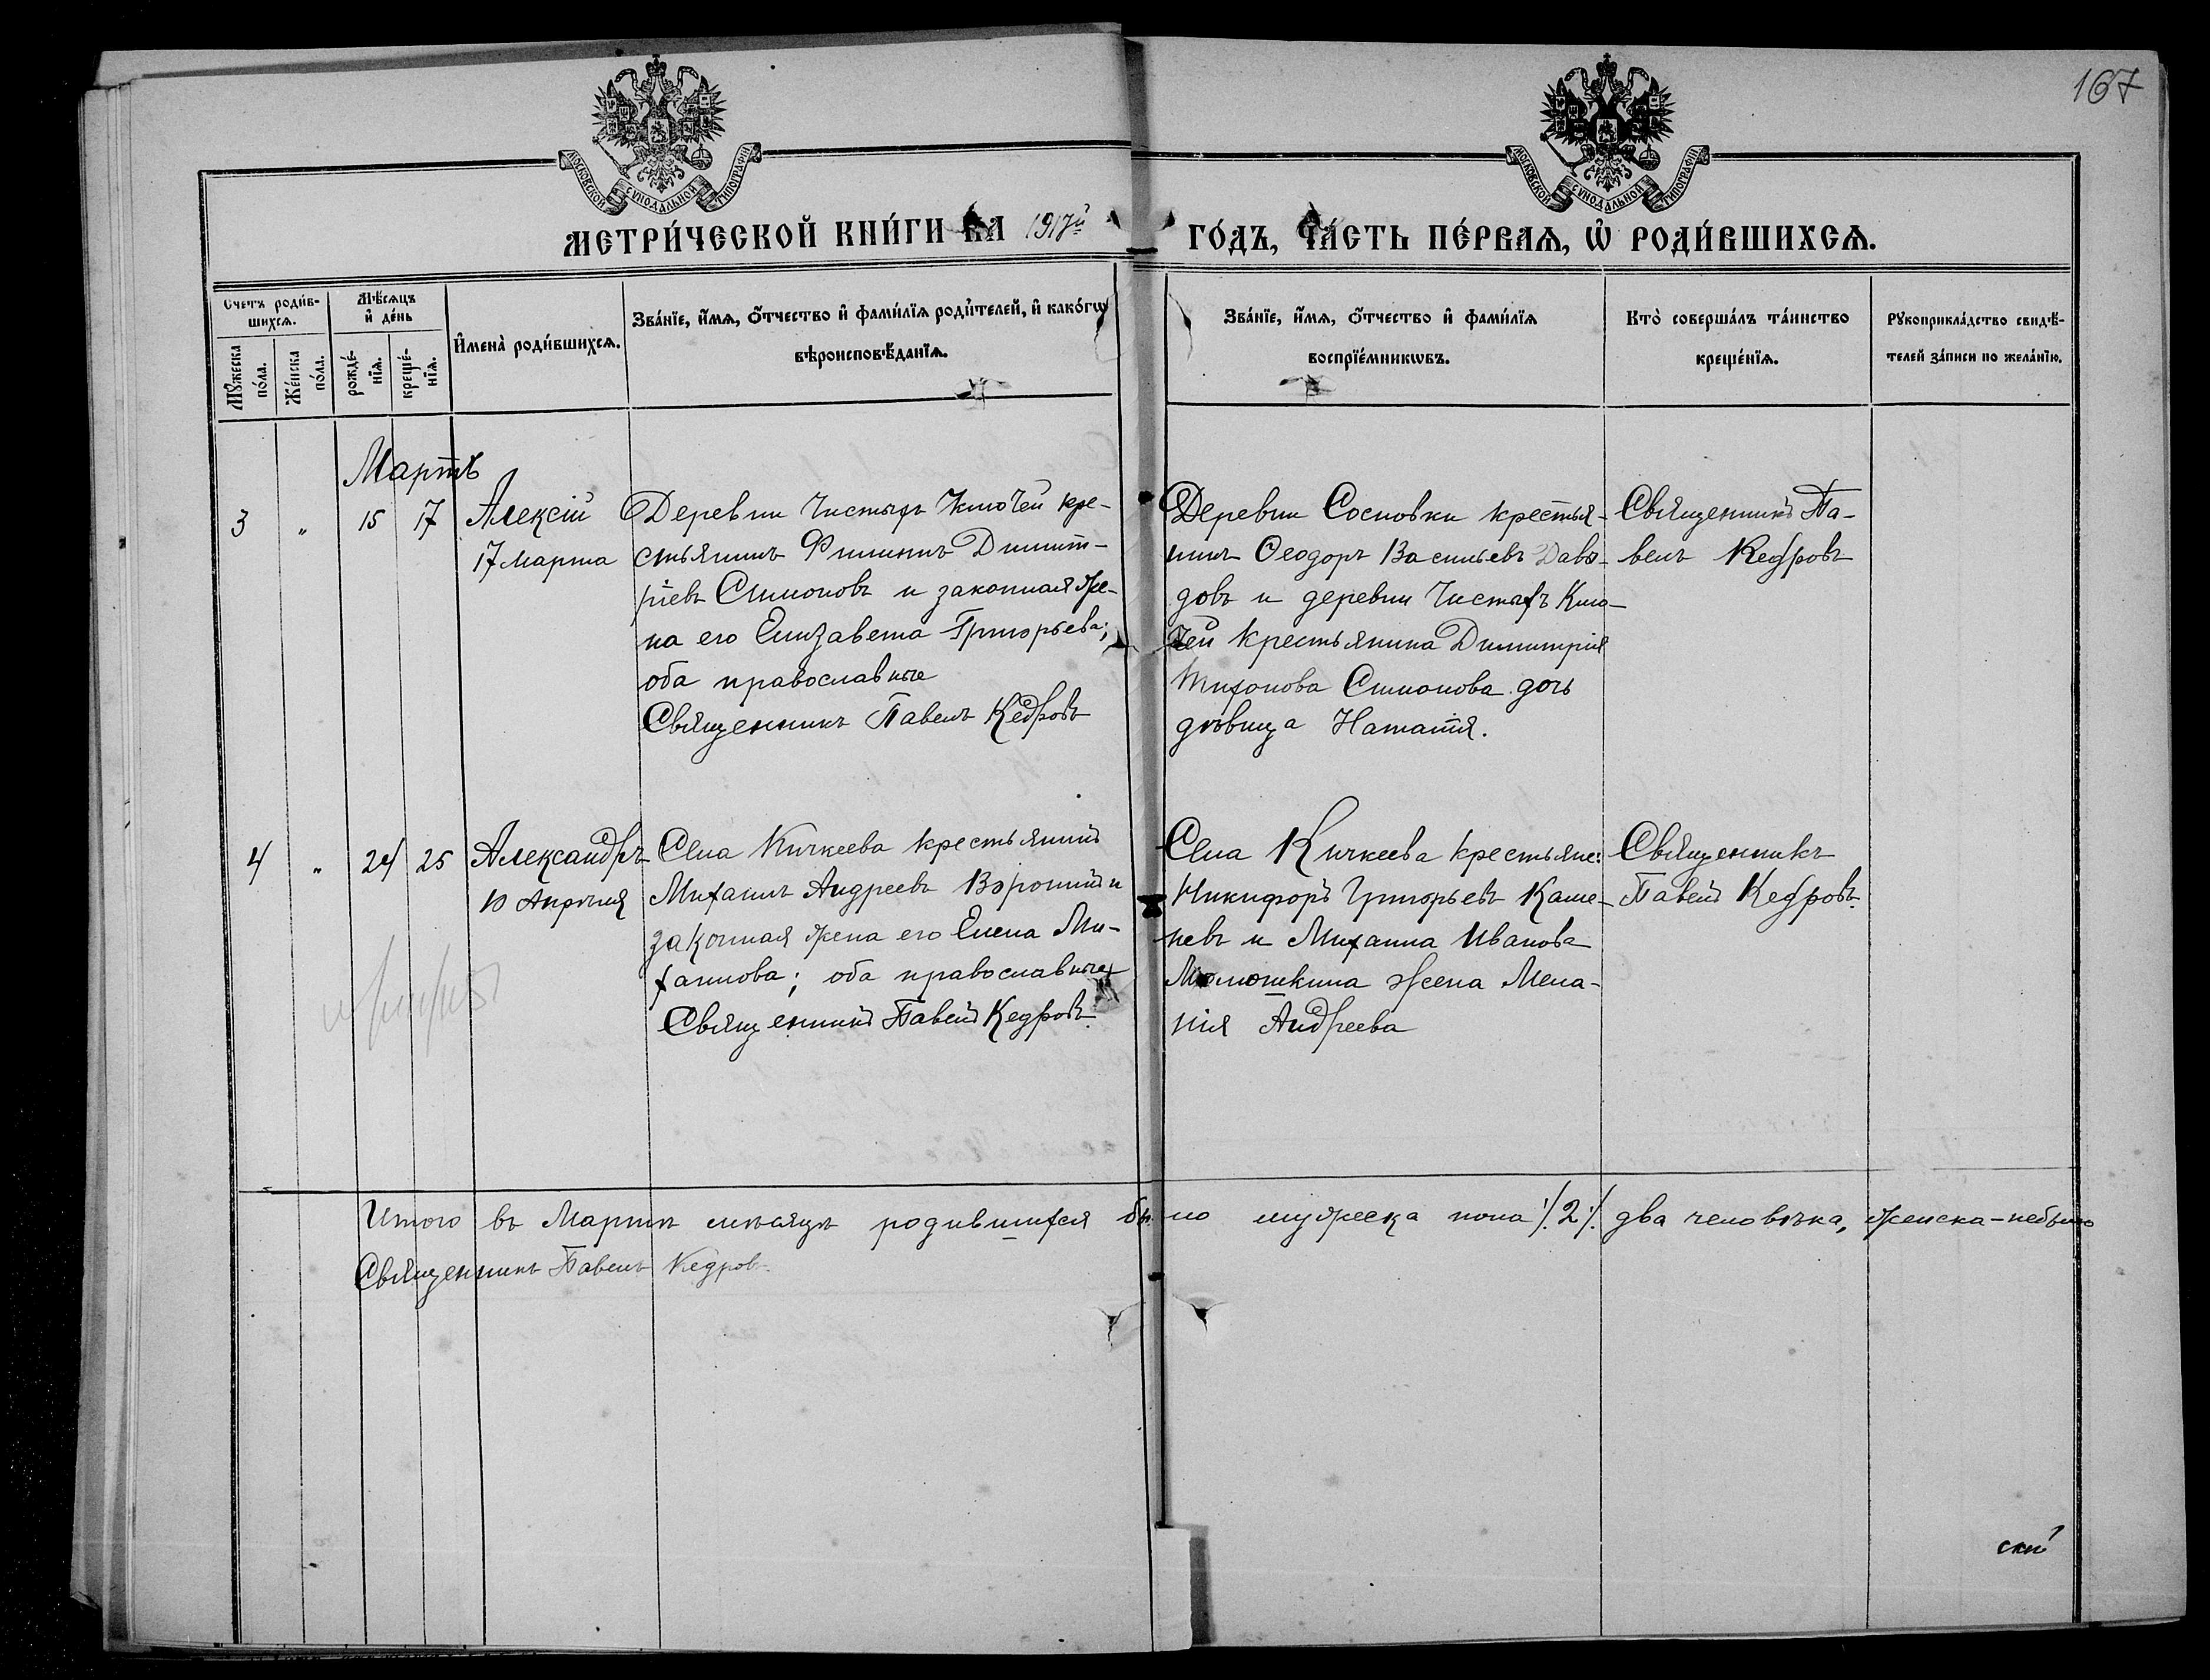 167
МОСКОВСКОЙ СѴНОДАЛЬНОЙ ТИПОГРАФІИ
МОСКОВСКОЙ СѴНОДАЛЬНОЙ ТИПОГРАФІИ
МЕТРИ́ЧЕСКОЙ КНИ́ГИ НА 1917й ГО́ДЪ, ЧА́СТЬ ПЕ́РВАѦ, Ѡ҆ РОДИ́ВШИХСѦ.
Счетъ роди́в-
шихсѧ.
Мꙋ́жеска
по́ла.
Же́нска
по́ла.
Мѣ́сѧцъ
и҆ де́нь
рожде́-
нїѧ.
креще́-
нїѧ.
И҆мена̀ роди́вшихсѧ.
Зва́нїе, и҆́мѧ, ѻ҆́тчество и҆ фами́лїѧ роди́телей, и҆ како́гѡ
вѣроисповѣ́данїѧ.
Зва́нїе, и҆́мѧ, ѻ҆́тчество и҆ фами́лїѧ
воспрїе́мникѡвъ.
Кто̀ соверша́лъ та́инство
креще́нїѧ.
Рꙋкоприкла́дство свидѣ́-
телей за́писи по жела́нїю.
Мартъ
3 " 15 17 Алексій
17 марта
Деревни Чистыхъ Ключей кре-
стьянинъ Филиппъ Димит-
ріевъ Симоновъ и законная же-
на его Елизавета Григорьева;
оба православные
Священникъ Павелъ Кедровъ
Деревни Сосновки крестья-
нинъ Ѳеодоръ Васильевъ Давы-
довъ и деревни Чистыхъ Клю-
чей крестьянина Димитрія
Тихонова Симонова дочь
дѣвица Наталія.
Священникъ Па-
велъ Кедровъ
4 " 24 25 Александръ
10 Апрѣля
Села Кичкеева крестьянинъ
Михаилъ Андреевъ Воронинъ и
законная жена его Елена Ми-
хаилова; оба православные
Священникъ Павелъ Кедровъ.
Села Кичкеева крестьяне:
Никифоръ Григорьевъ Каше-
невъ и Михаила Иванова
жена Мела-
нія Андреева
Священникъ
Павелъ Кедровъ.
Итого въ Мартѣ мѣсяцѣ родившихся было мужеска пола ./. 2 ./. два человѣка, женска – небыло
Священникъ Павелъ Кедровъ.
скій